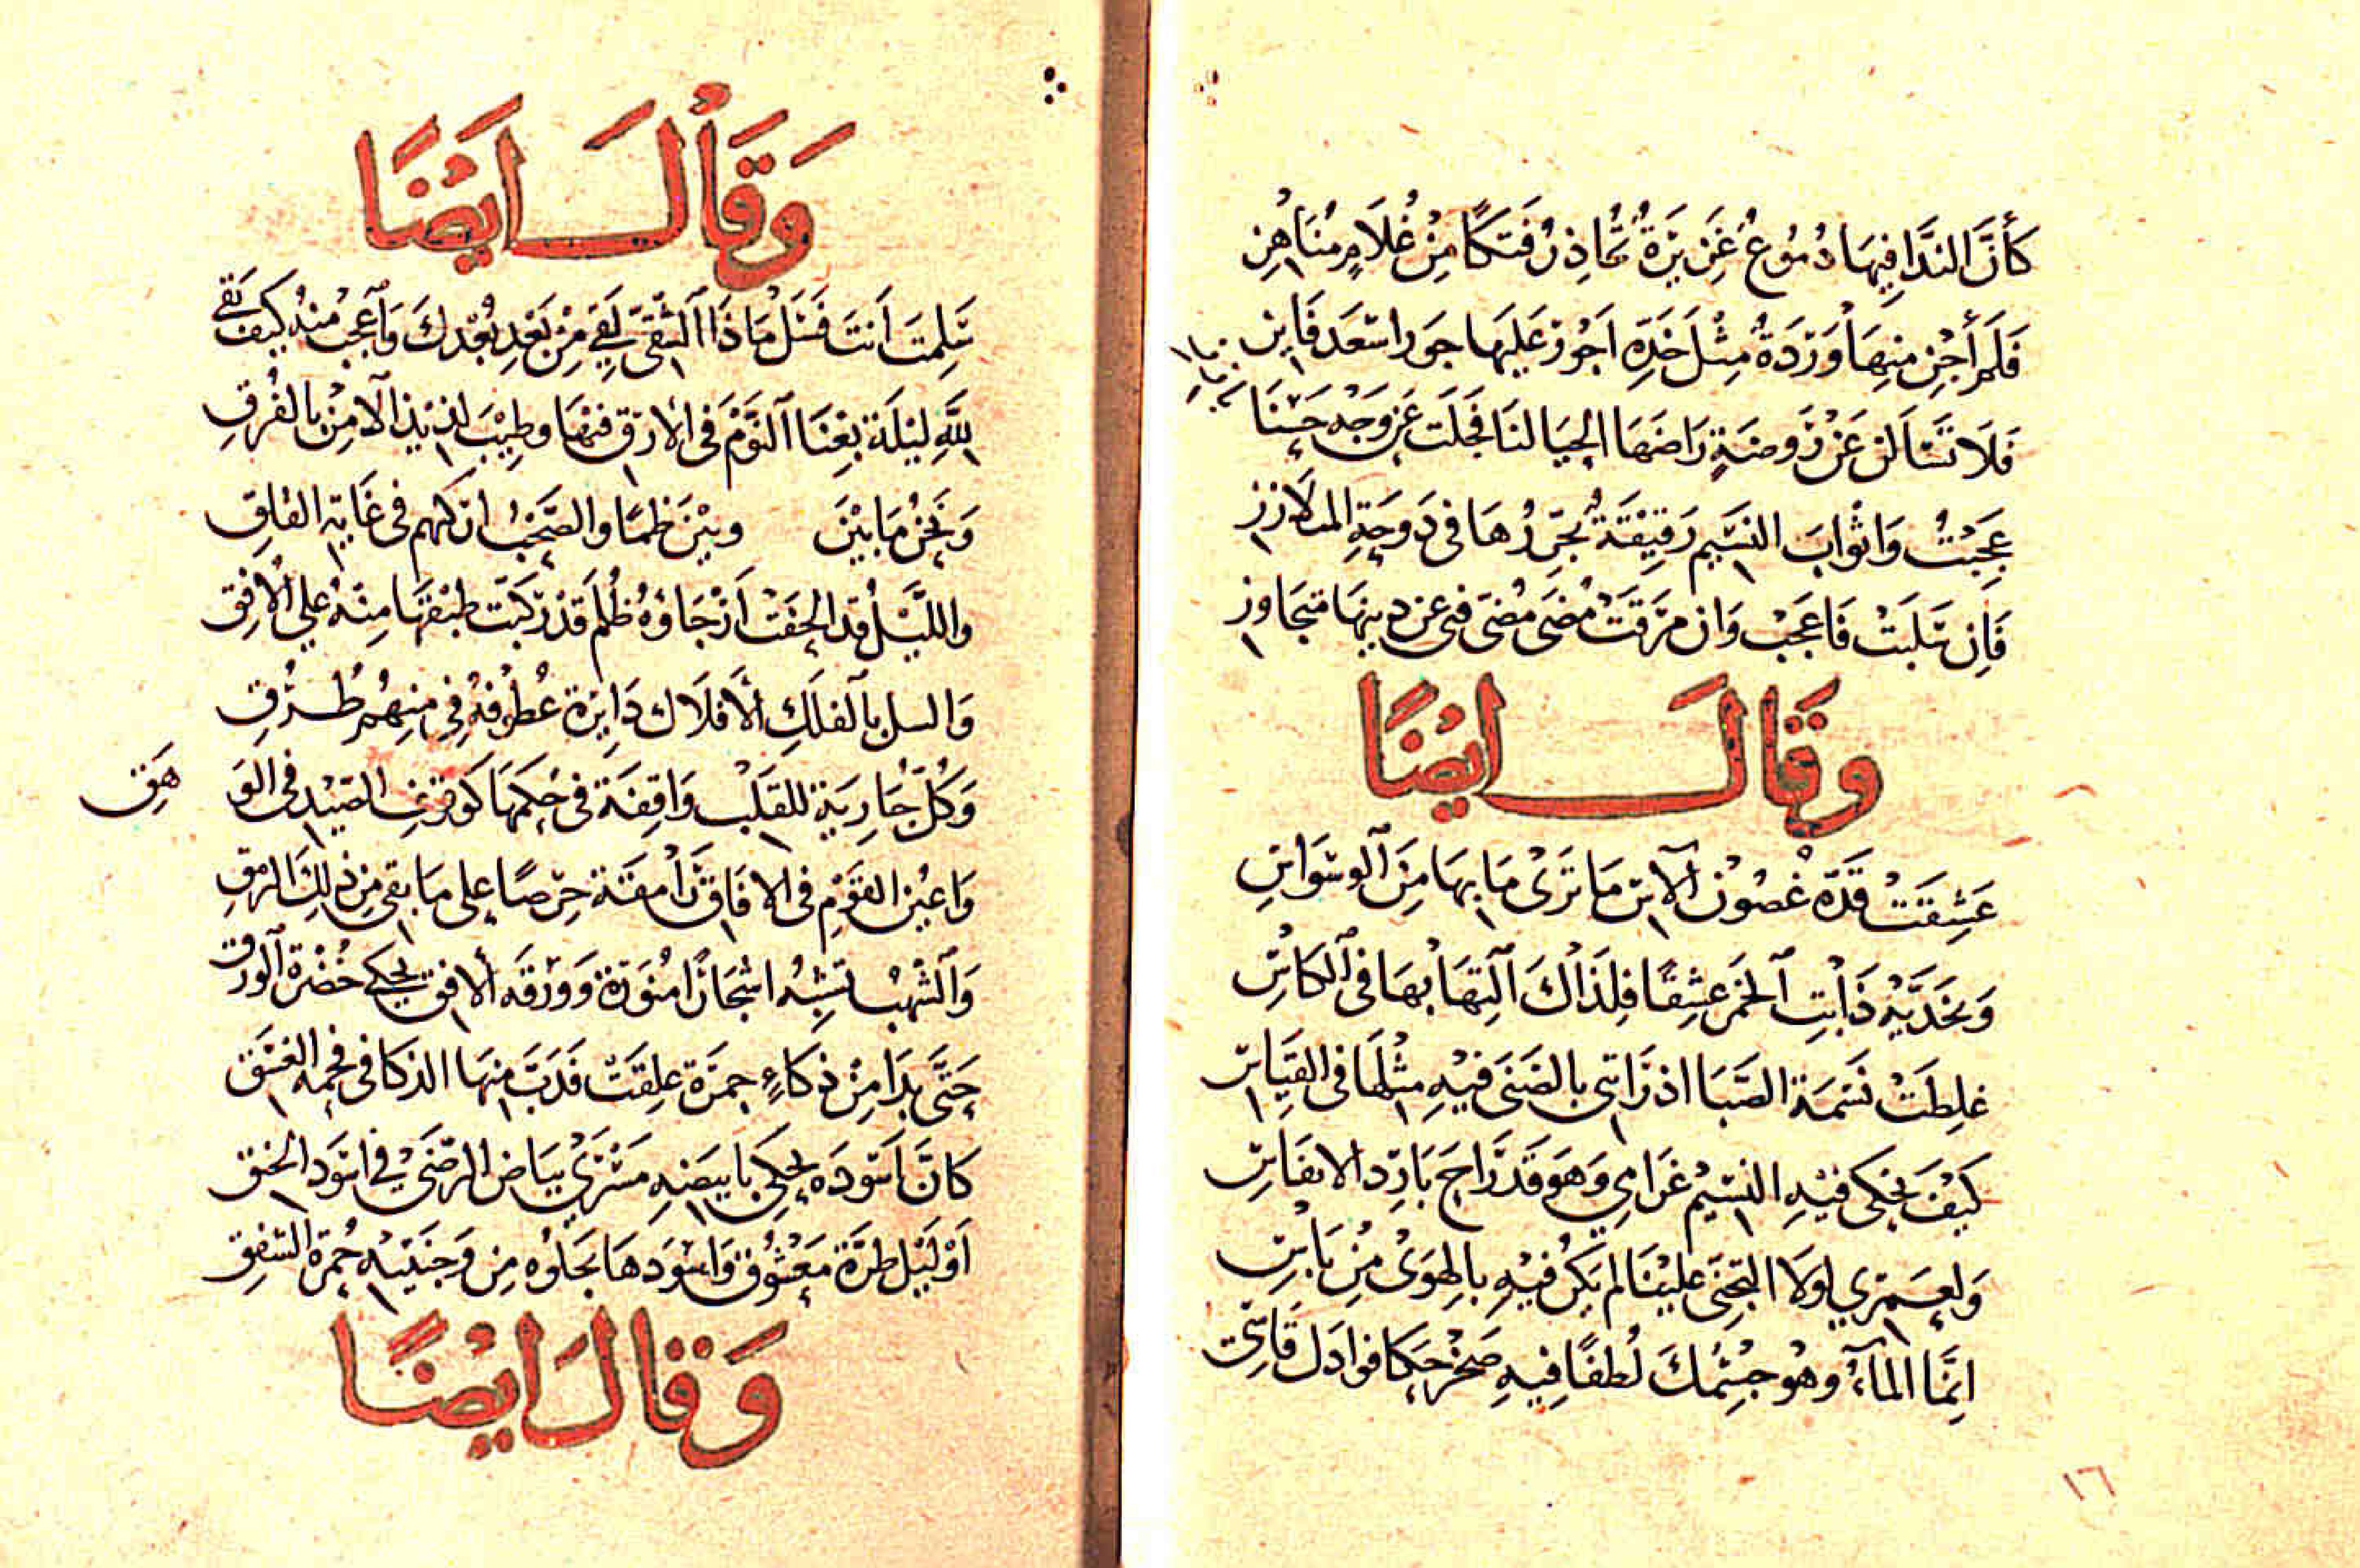 كَأَنَّ النَّدَا فِيهَا دُمُوعُ غَزِيرَةٌ تُحَاذِرُ فَتَكًا مِنْ غُلَامٍ مُنَاهِزِ
فَلَمْ أَجْنِ مِنهَا وَرْدَةً مِثْلَ خَدِّهِ اَجُوزُ عَلَيهَا جوراسْعَد فَايِز
فَلَا تَسْأَلَن عَنْ رَوضَةٍ رَاضَهَا الحَيَا لنَا فَجَلَت عَن وَجْهِ حَسْنَا
عَجِبْتُ وَاثْوابَ النَسِيم رَقِيقَةٌ يُجَرِّرُهَا في دَوحَةِ
فَاِن سَلِبَتْ فَاعجَبْ وَان مَزَّقَتْ مُضَى مُضىَ في عن دينهَا مُتَجَاوِز
وقَالَ ايْضًا
عَشِقَتْ قَدَّه غُصُونُ الآسِ مَا تَرَى مَا بِهَا مِنَ الوسْوَاسِ
وَبخَدَّيْهِ ذَابَتِ الخَمْر عِشْقًا فَلِذَاكَ الْتِهَابُهَا في الكَاسِ
غلِطَتْ نَسْمَة الصَّبَا اذ زَاَتني بالضَنَى فيْهِ مِثْلهَا في القِيَاسِ
كَيْفَ يَحْكى فيْهِ النَسِيْمُ غَرَامِي وَهَوَ قَدْ رَاحَ بَارِد الانفَاسِ
وَلِعَمْرِي لولَا التجَنِّى عَليْنَا لم يَكُنْ فيْهِ بالهوَىْ مِنْ بَاسِ
اِنمَّا المآءُ وهُو جِسْمُكَ لُطفًا فِيهِ صَخْرٌ حَكَا فوادك قَاسِى
١٦
وَقَالَ اَيْضًا
سَلِمتَ اَنتَ فَسَلْ مَاذَا الشَّقيّ لَقِي مِنْ بَعْدِ بُعْدِكَ وَاَعجَبْ مِنهُ كَيفَ بَقي
للهِ ليْلَة بِعْنَا النَوْمَ في الأرَق فيهَا وطِيْبَ لذيذ الأمْنِ بالفُرْقِ
وَنَحْنُ مَا بَيْنَ وبيْنَ ظمًا والصَّحْبُ انْ كلهم في غَايةِ القلقِ
واللَّيْلُ قد الحَفَتْ اَرْجَاؤهُ ظُلَم قَدْ رَكّبَتْ طبْقهَا مِنْهُ علي الاُفُقِ
بالفلَكِ الأَفلَاك دَايرَة في مِنهُمْ طُرُقِ
وَكُلّ جَارِيَة للقَلْبِ وَاقِفَة في حُكمهَا كَوقوفِ الصَيْدِ في الوَهَقِ
وَاعيُن القَوْمِ في الافَاقِ رَامقَة حِرْصًا علي مَا بقى مِن ذلِكَ الرمَقِ
وَالشُهْبُ تشبِهُ اشْجَارًا مُنَوّرَة وَوَرْقَه الافق يحكي خُضْرَة الورَقِ
حَتَّى بدَا مِنْ ذكَاءٍ جمرَة علِقَتْ فَدَبَّ منهَا الذكَا في فحْمه الغسَقِ
كَانَّ اَسْوَدَه يحكي بابيضهِ مَسْرَيْ بيَاض الرضَىْ في اسْوَد الحنَق
اَوْ لَيْل طرَّة مَعْشُوقٍ وَاسْوَدهَا يَجْلوُه مِن وَجنَتيْهِ حُمرَة الشفق
وَقَالَ ايْضًا